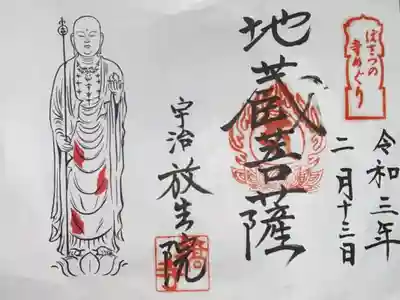 ぼさつの
寺めぐり
令和三年
二月十三日
地蔵菩薩
宇治 放生院
橋寺